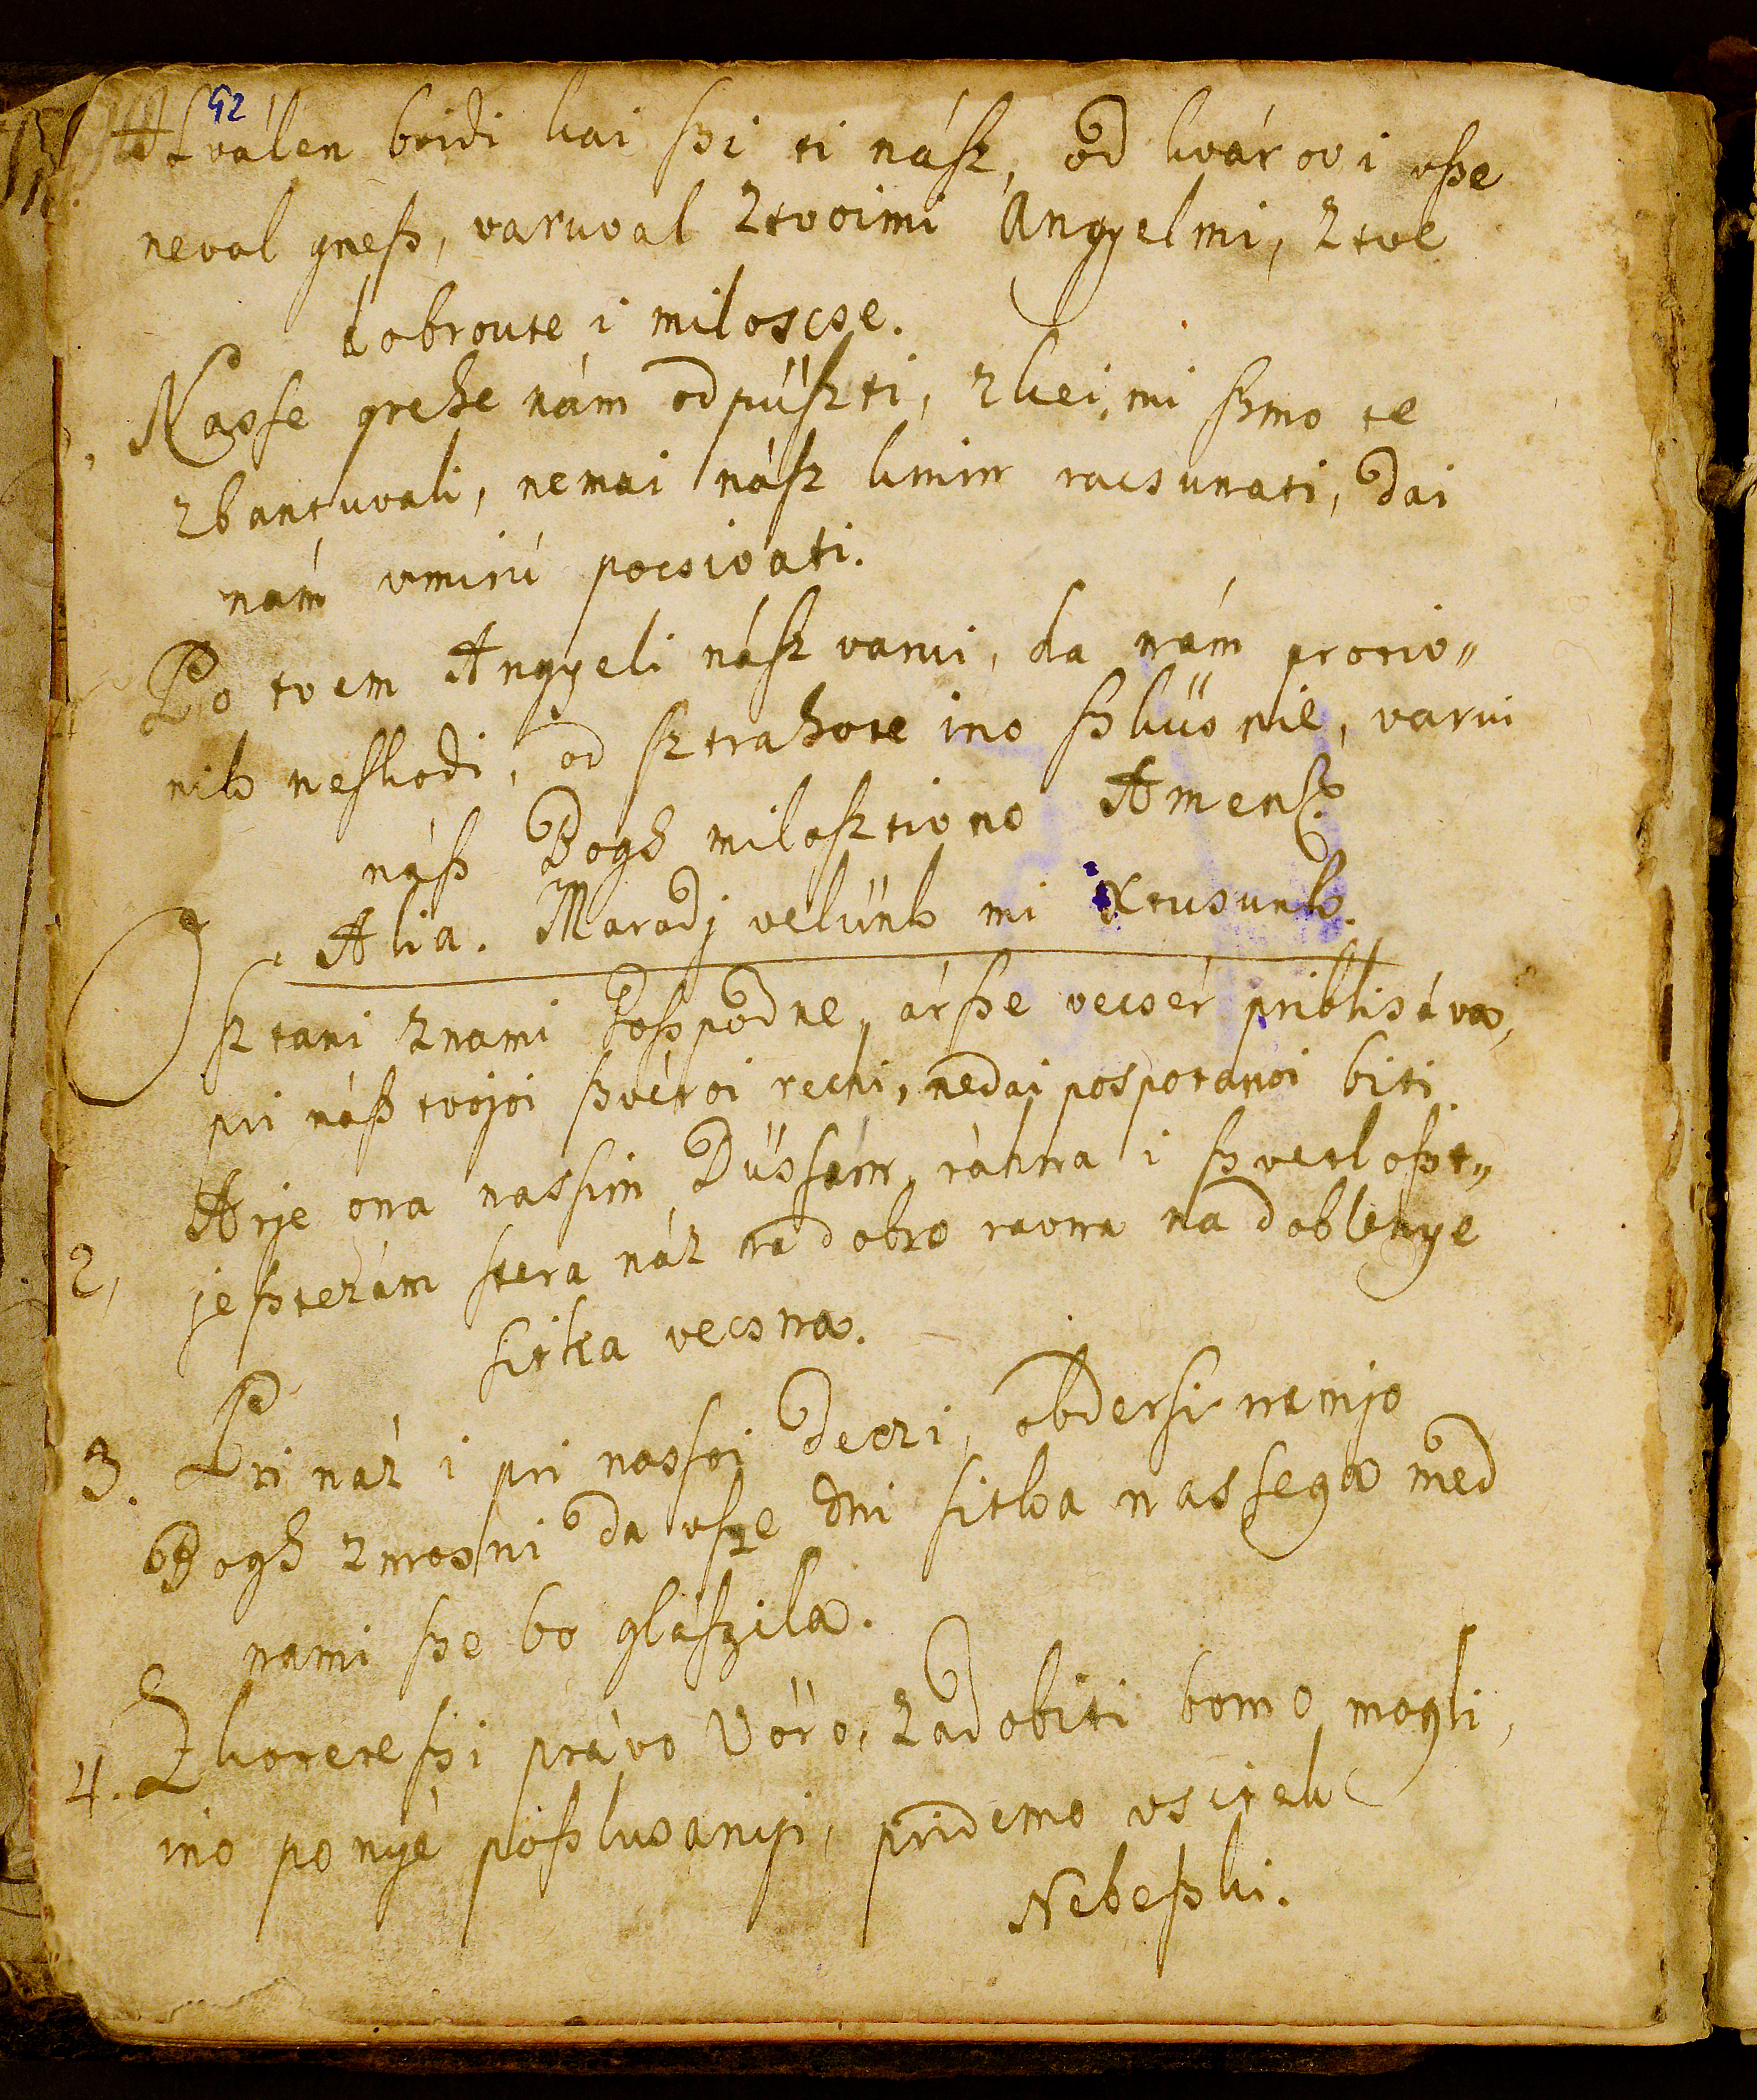 92
Hválen boidi kai ſzi ti náſz, od kvárov i vſze
neval gneſz, varuval Ztvoimi Angyelmi, Ztve
dobroute i miloscse.
Nasſe grehe nám odpüſzti, zkei, mi ſzmo te
zbantuvali, nemai náſz kmirr racsunati, dai
nám vmirú pocsivati.
Po tvem Angyeli náſz varui, da nám protiv„
nik neſkodi, od ſztrahote ino ſzküsnie, varui
náſz Bogh milosztivno Amen.
Alia. Maradj velünk mi Xtusunk.
Osztani znami Goſzpodne, árſze vecsér priblisáva,
pri náſz tvojoi ſzvétoi recsi, nedai pospotanoi biti.
2, Arje ona nasſim Düsſám, rákna i ſzvetloſzt„
jeſztezám ſtera náz na dobro ravna na doblenye
ſitka vecsna.
3. Pri náz i pri nasſoi deczi, obderſi namjo
Bogh zmosni da vſze dni ſitka nasſega med
nami ſze bo gláſzila.
4. Zkoterefſzi právo Vöro, zadobiti bomo mogli,
ino ponyé poſzlusanyi, pridemo vscitek
Nebeſzki.